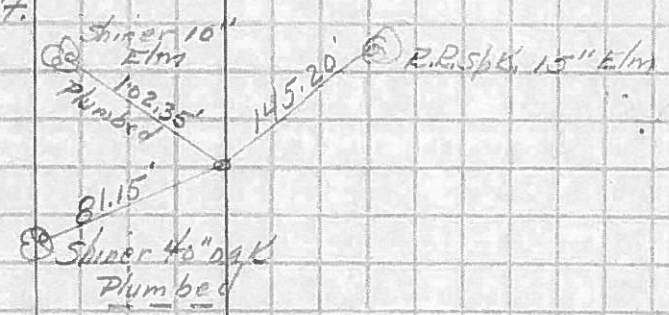 Shiner 10"
Elm
102.35'
Plumbed
145.20'
R.R.Spk. 15" Elm
81.15'
Shiner 40" oak
Plumbed